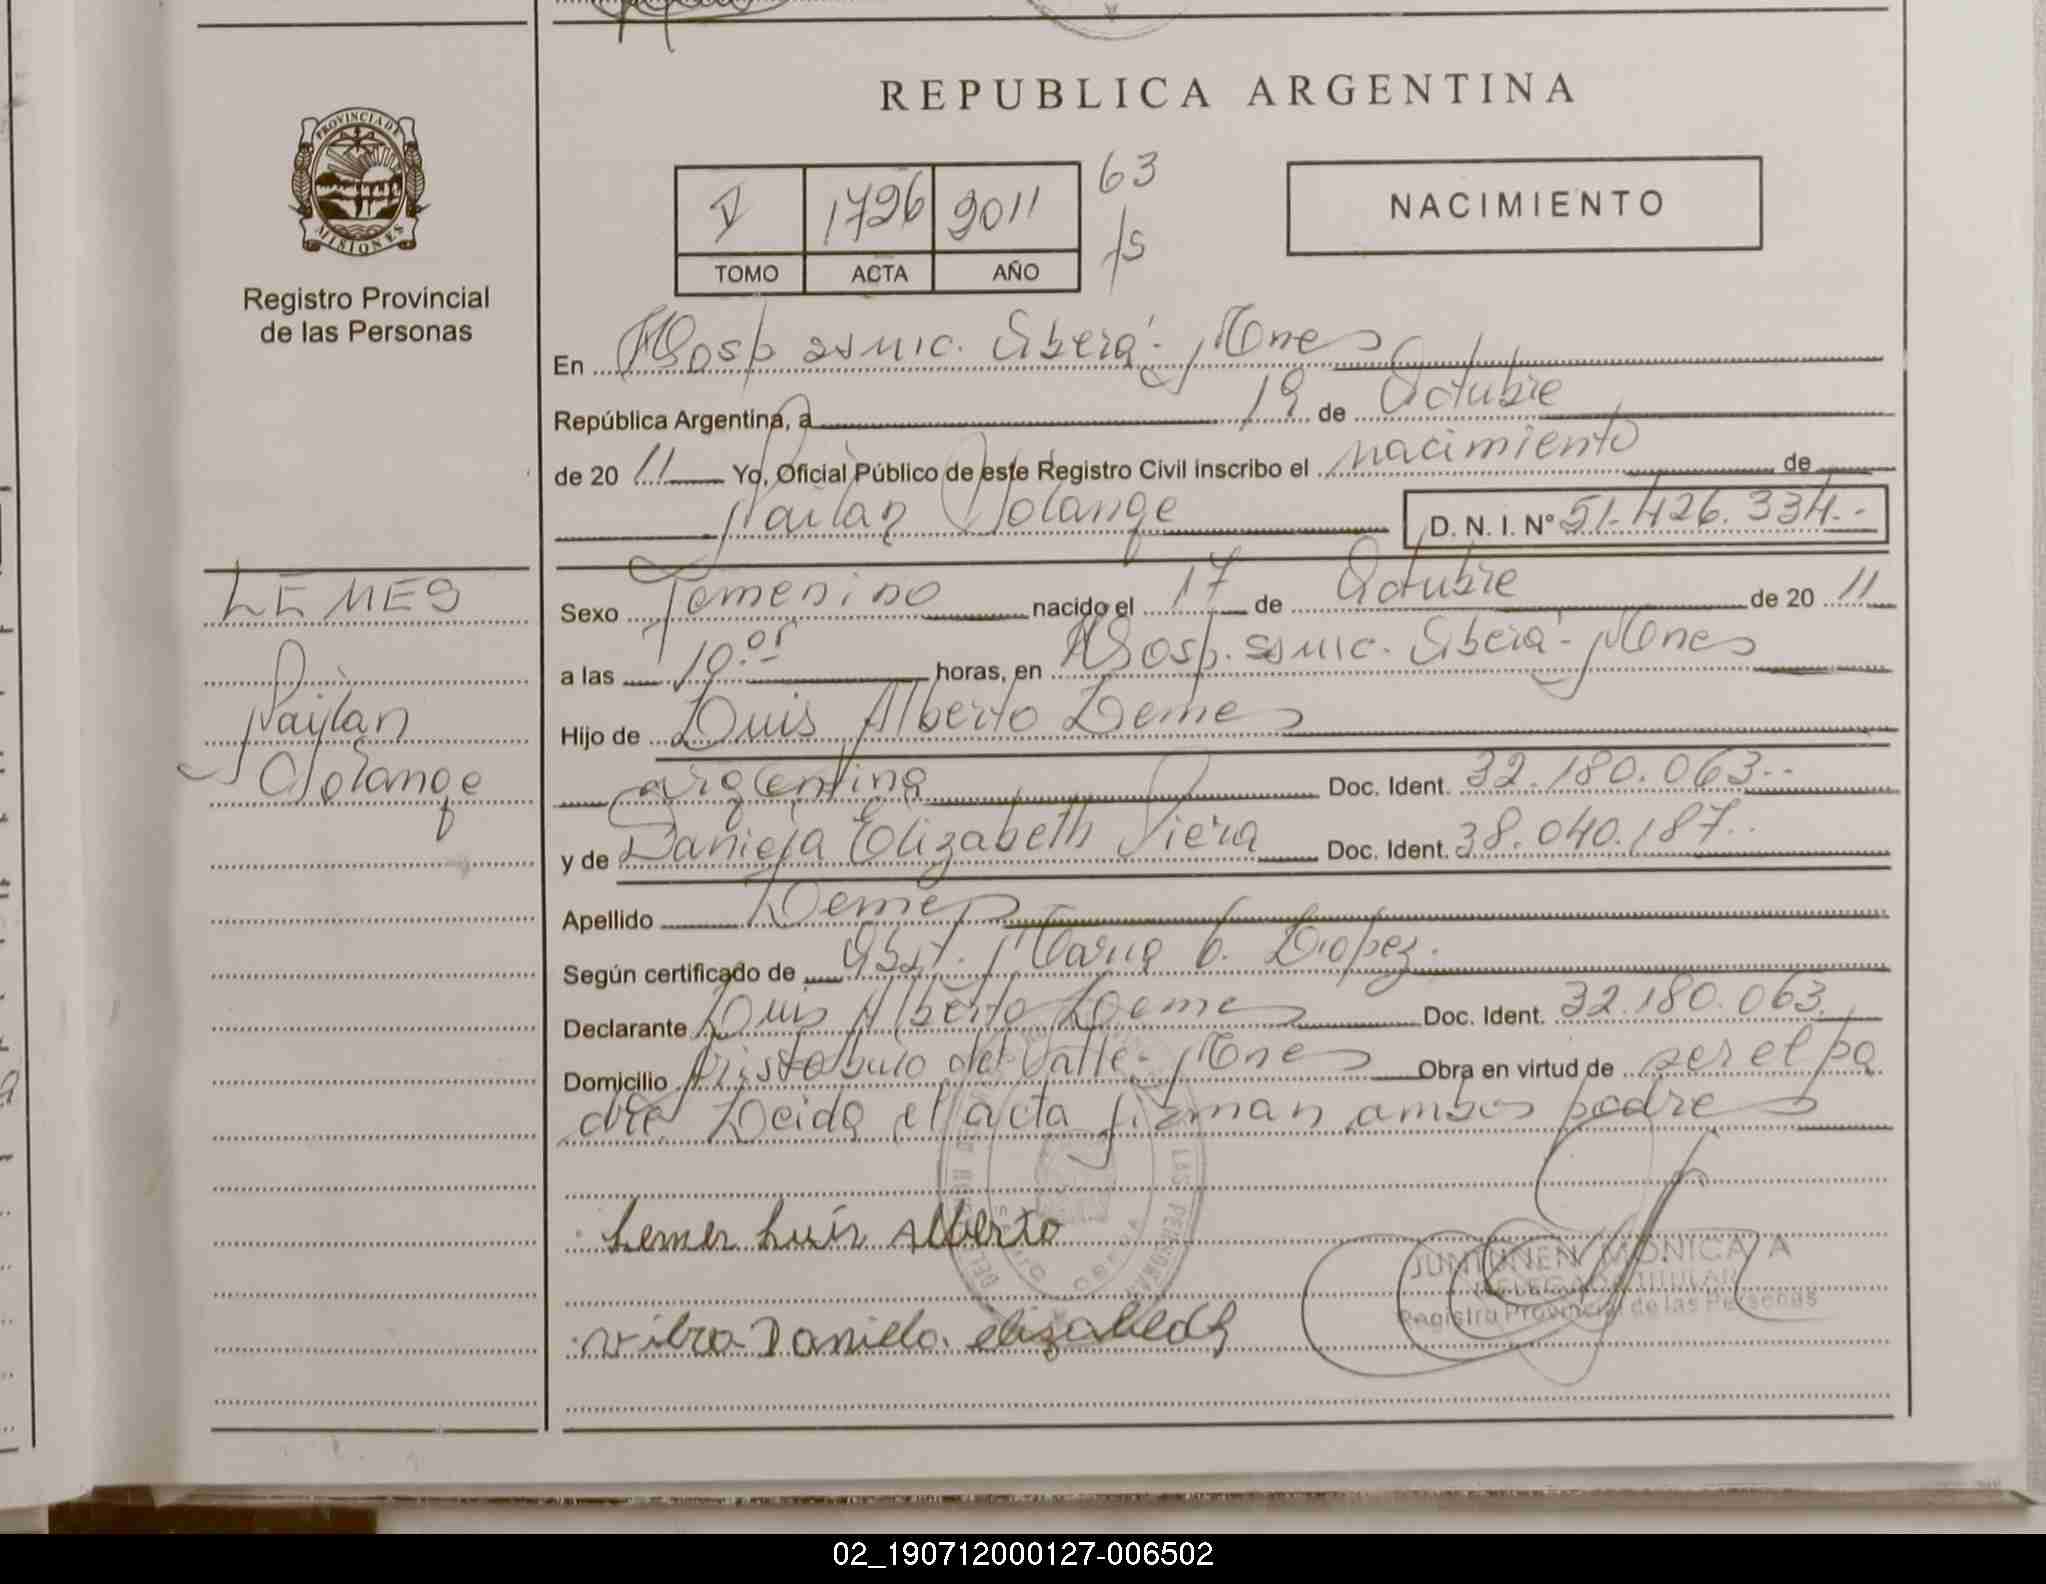 REPUBLICA ARGENTINA
PROVINCIA DE MISIONES
Registro Provincial
de las Personas
V 1726 2011
TOMO ACTA AÑO
63
/S
NACIMIENTO
En Hosp. Samic. Oberá - Mnes
República Argentina, a 19 de Octubre
de 20 11 Yo, Oficial Público de este Registro Civil inscribo el nacimiento de
Nailan Solange D. N. I. N° 51.426.334.-
LEMES
Naylan
Solange
Sexo Femenino nacido el 17 de Octubre de 20 11
a las 10.05 horas, en Hosp. Samic. Oberá - Mnes
Hijo de Luis Alberto Lemes
argentina Doc. Ident. 32.180.063.-
y de Daniela Elizabeth Viera Doc. Ident. 38.040.187.
Apellido Lemes
Según certificado de Obst. Maria Lopez.
Declarante Luis Alberto Lemes Doc. Ident. 32.180.063.
Domicilio Aristobulo del Valle - Mnes Obra en virtud de ser el pa
dre Leida el acta firman ambos padres
Lemes Luis Alberto
JUNTUNEN MONICA A
DELEGADA TITULAR
Registro Provincial de las Personas
Daniela elizabeth
02_190712000127-006502